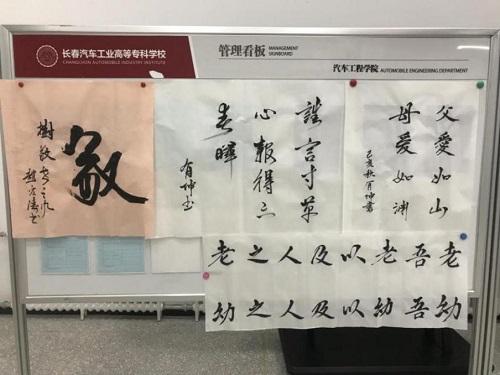 长春汽车工业高等专科学校
CHANGCHUN AUTOMOBILE INDUSTRY INSTITUTE
管理看板 MANAGEMENT SIGNBOARD
汽车工程学院 AUTOMOBILE ENGINEERING DEPARTMENT
敬
樹敬老之风
誰言寸草
心報得三
春暉
有坤书
父愛如山
母爱如渊
己亥秋有坤書
老吾老以及人之老
幼吾幼以及人之幼